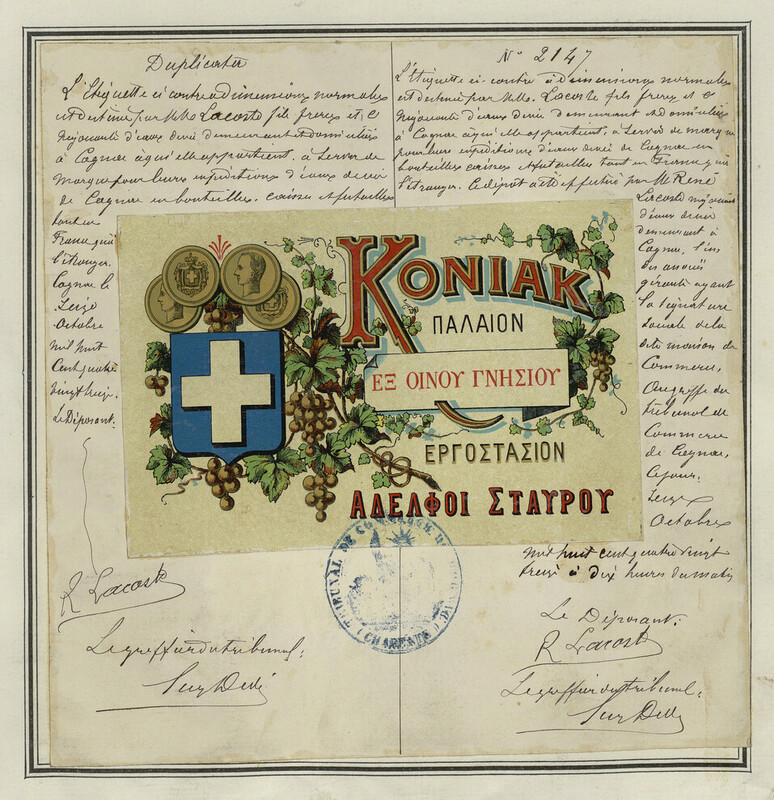 Duplicata
L'Etiquette ci contre a dimensions normales
est destinée par MMrs Lacoste fils freres et Cie
Négociants d'eaux devie demeurant et domiciliés
à Cognac à qui elle appartient, à servir de
marque pour leurs expéditions d'eaux de vie
de Cognac en bouteilles, caisses et futailles
tant en
France qu'à
l'étranger.
Cognac le
Seize
Octobre
mil huit
Cent quatre
vingt treize.
Le Déposant.
R Lacoste
Le greffier du tribunal:
N° 2147
L'Etiquette ci-contre à dimensions normales
est destinée par MMrs. Lacoste fils freres et Cie
Négociants d'eaux devie demeurant et domiciliés
à Cognac à qui elle appartient, à servir de marque
pour leurs expéditions d'eaux devie de Cognac en
bouteilles caisses et futailles tant en France qu'à
l'étranger. Le dépôt a été effectué par Mr René
Lacoste négociant
d'eaux devie
demeurant à
Cognac, l'un
des associés
gérants ayant
la signature
sociale de la
dite maison de
Commerce,
Au greffe du
tribunal de
Commerce
de Cognac,
Ce jour.
Seize
Octobre
mil huit cent quatre vingt
treize à dix heures du matin
Le Déposant.
R Lacoste
Le greffier du tribunal:
ΚΟΝΙΑΚ
ΠΑΛΑΙΟΝ
ΕΞ ΟΙΝΟΥ ΓΝΗΣΙΟΥ
ΕΡΓΟΣΤΑΣΙΟΝ
ΑΔΕΛΦΟΙ ΣΤΑΥΡΟΥ
TRIBUNAL DE COMMERCE
(CHARENTE)